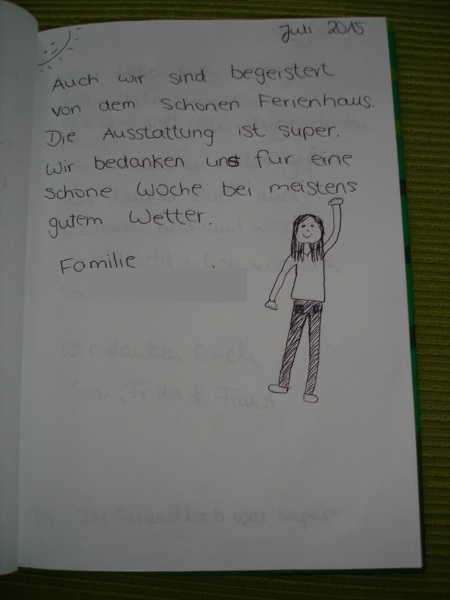 Juli 2015
Auch wir sind begeistert
von dem schönen Ferienhaus.
Die Ausstattung ist super.
Wir bedanken uns für eine
schöne Woche bei meistens
gutem Wetter.
Familie
Wir danken Euch